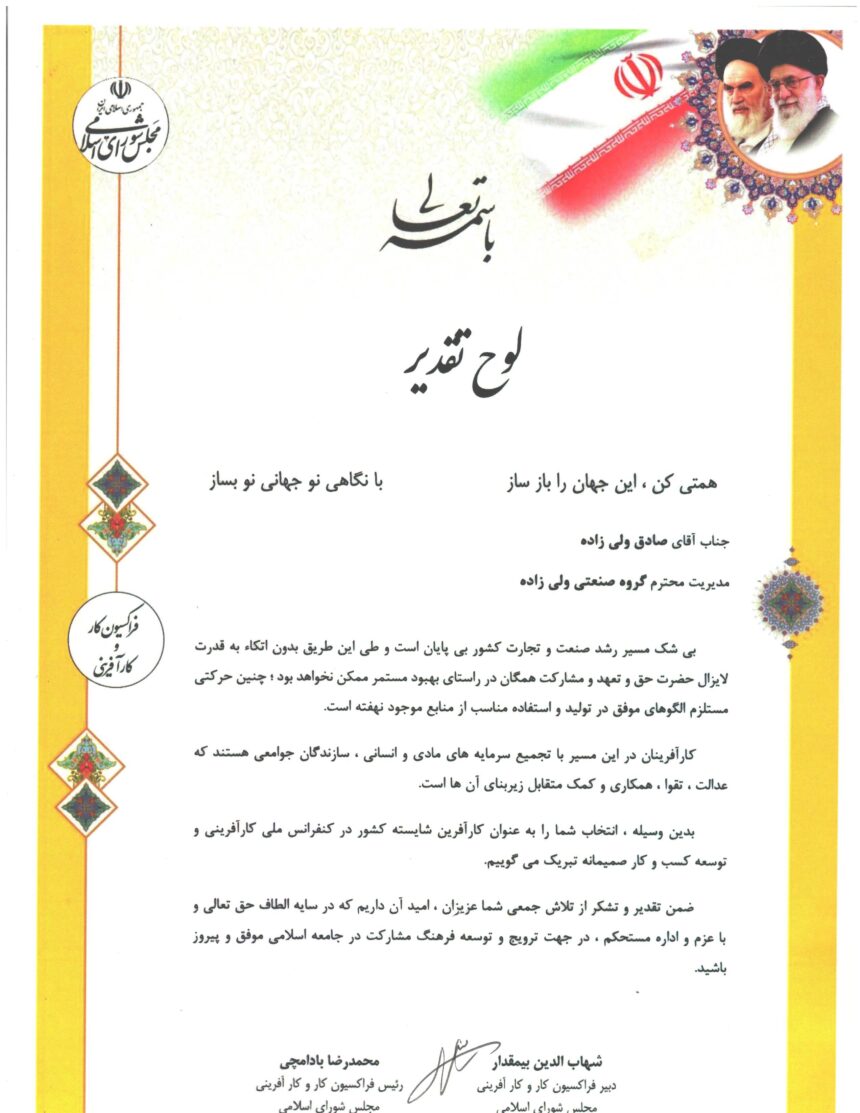 جمهوری اسلامی ایران
مجلس شورای اسلامی
باسمه تعالی
لوح تقدیر
همتی کن ، این جهان را باز ساز با نگاهی نو جهانی نو بساز
جناب آقای صادق ولی زاده
مدیریت محترم گروه صنعتی ولی زاده
فراکسیون کار
و
کارآفرینی
بی شک مسیر رشد صنعت و تجارت کشور بی پایان است و طی این طریق بدون اتکاء به قدرت
لایزال حضرت حق و تعهد و مشارکت همگان در راستای بهبود مستمر ممکن نخواهد بود ؛ چنین حرکتی
مستلزم الگوهای موفق در تولید و استفاده مناسب از منابع موجود نهفته است.
کارآفرینان در این مسیر با تجمیع سرمایه های مادی و انسانی ، سازندگان جوامعی هستند که
عدالت ، تقوا ، همکاری و کمک متقابل زیربنای آن ها است.
بدین وسیله ، انتخاب شما را به عنوان کارآفرین شایسته کشور در کنفرانس ملی کارآفرینی و
توسعه کسب و کار صمیمانه تبریک می گوییم.
ضمن تقدیر و تشکر از تلاش جمعی شما عزیزان ، امید آن داریم که در سایه الطاف حق تعالی و
با عزم و اداره مستحکم ، در جهت ترویج و توسعه فرهنگ مشارکت در جامعه اسلامی موفق و پیروز
باشید.
شهاب الدین بیمقدار
دبیر فراکسیون کار و کار آفرینی
مجلس شورای اسلامی
محمدرضا بادامچی
رئیس فراکسیون کار و کار آفرینی
مجلس شورای اسلامی